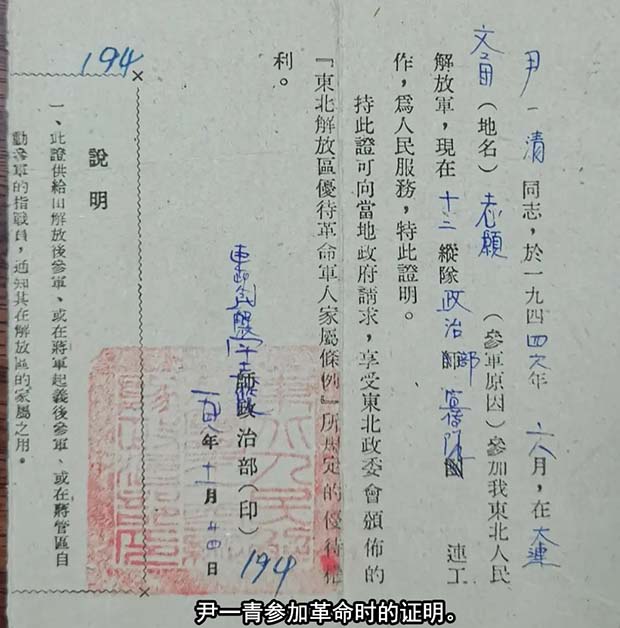 尹一清同志，於一九四年月，在大連
（地名）志願（參軍原因）參加我東北人民
解放軍，現在十二縱隊政治部連工
作，爲人民服務，特此證明。
持此證可向當地政府請求，享受東北政委會頒佈的
『東北解放區優待革命軍人家屬條例』所規定的優待權
利。
師政治部（印）
年十一月廿四日
194
194
說明
一、此證供給旧解放後參軍、或在蔣軍起義後參軍、或在蔣管區自
動參軍的指戰員，通知其在解放區的家屬之用。
尹一青参加革命时的证明。